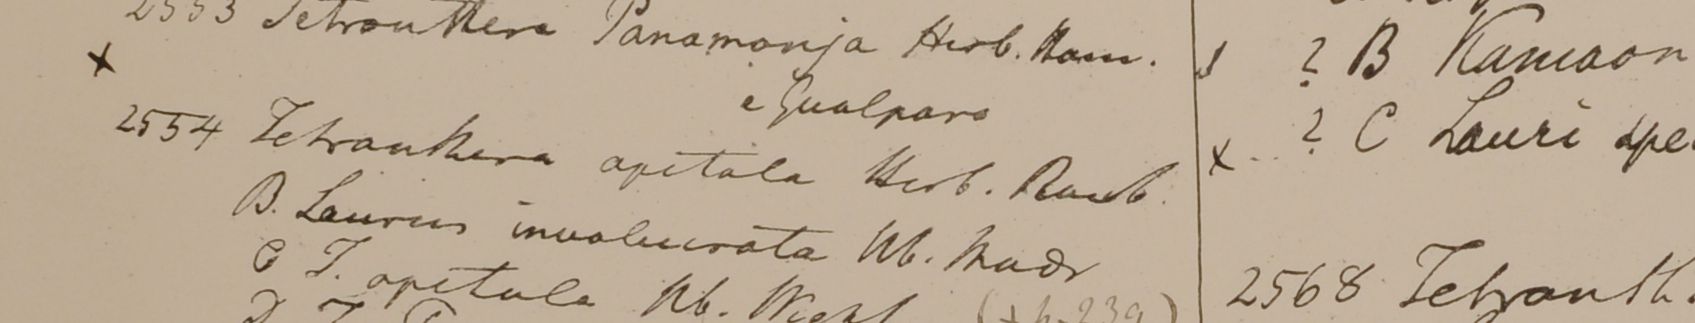 2553 Tetranthera Panamonja Herb. Ham.
e Gualpara
x
2554 Tetranthera apetala Herb. Roxb.
B. Laurus involucrata Hb. Madr
C T. apetala Hb. Wight
D T.
? B Kamaon
x ? C Lauri spe
2568 Tetranth